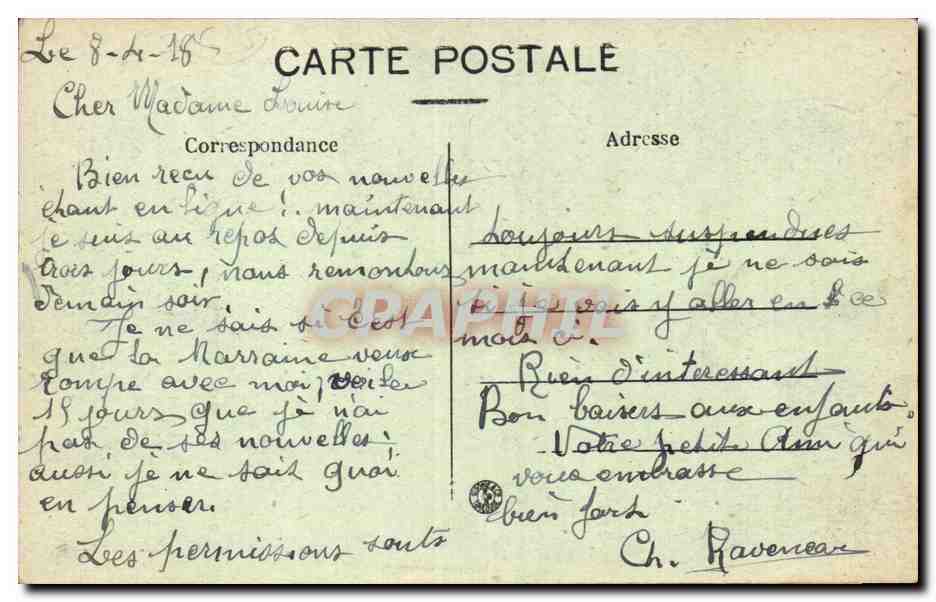 Le 8-4-18
CARTE POSTALE
Cher Madame Louise
Correspondance
Bien reçu de vos nouvelles
étant en ligne! maintenant
je suis au repos depuis
trois jours, nous remontons
demain soir.
Je ne sais si c'est
que la Marraine veux
rompe avec moi, voila
15 jours que je n'ai
pas de ses nouvelles:
aussi je ne sait quoi
en penser.
Les permissions sonts
Adresse
toujours suspendues
maintenant je ne sais
si je vais y aller en ce
mois ci.
Rien d'interessant
Bon baisers aux enfants.
Votre petit Ami qui
vous embrasse
bien fort
Ch.
CPAPHIL